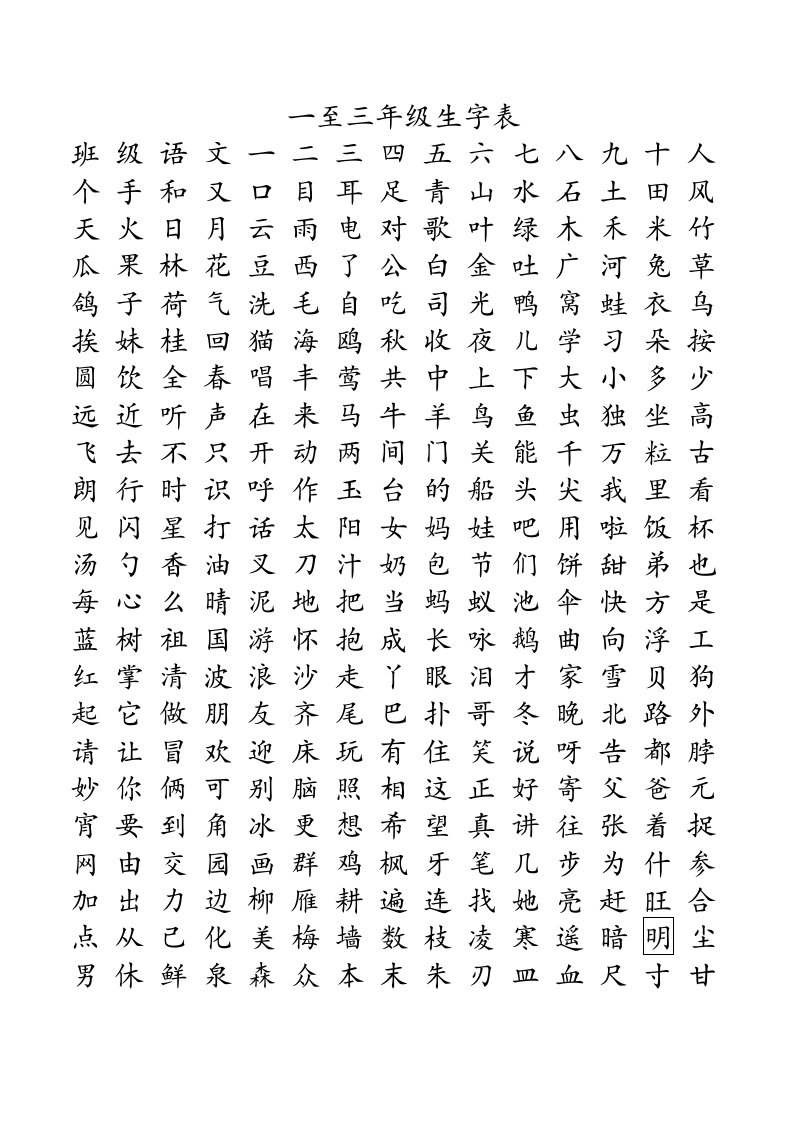 一至三年级生字表
班 级 语 文 一 二 三 四 五 六 七 八 九 十 人
个 手 和 又 口 目 耳 足 青 山 水 石 土 田 风
天 火 日 月 云 雨 电 对 歌 叶 绿 木 禾 米 竹
瓜 果 林 花 豆 西 了 公 白 金 吐 广 河 兔 草
鸽 子 荷 气 洗 毛 自 吃 司 光 鸭 窝 蛙 衣 乌
挨 妹 桂 回 猫 海 鸥 秋 收 夜 儿 学 习 朵 按
圆 饮 全 春 唱 丰 莺 共 中 上 下 大 小 多 少
远 近 听 声 在 来 马 牛 羊 鸟 鱼 虫 独 坐 高
飞 去 不 只 开 动 两 间 门 关 能 千 万 粒 古
朗 行 时 识 呼 作 玉 台 的 船 头 尖 我 里 看
见 闪 星 打 话 太 阳 女 妈 娃 吧 用 啦 饭 杯
汤 勺 香 油 叉 刀 汁 奶 包 节 们 饼 甜 弟 也
每 心 么 晴 泥 地 把 当 蚂 蚁 池 伞 快 方 是
蓝 树 祖 国 游 怀 抱 成 长 咏 鹅 曲 向 浮 工
红 掌 清 波 浪 沙 走 丫 眼 泪 才 家 雪 贝 狗
起 它 做 朋 友 齐 尾 巴 扑 哥 冬 晚 北 路 外
请 让 冒 欢 迎 床 玩 有 住 笑 说 呀 告 都 脖
妙 你 俩 可 别 脑 照 相 这 正 好 寄 父 爸 元
宵 要 到 角 冰 更 想 希 望 真 讲 往 张 着 捉
网 由 交 园 画 群 鸡 枫 牙 笔 几 步 为 什 参
加 出 力 边 柳 雁 耕 遍 连 找 她 亮 赶 旺 合
点 从 己 化 美 梅 墙 数 枝 凌 寒 遥 暗 明 尘
男 休 鲜 泉 森 众 本 末 朱 刃 皿 血 尺 寸 甘